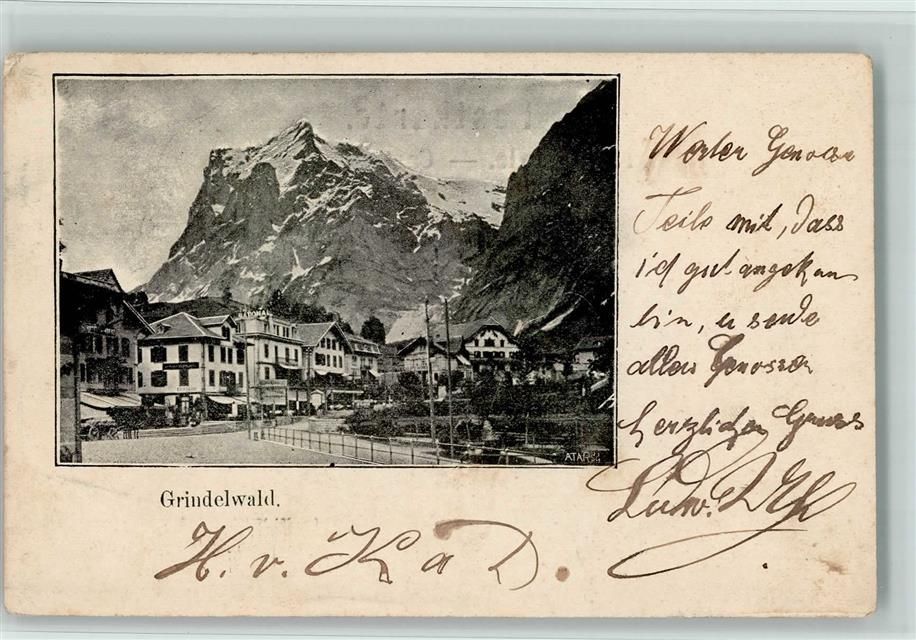 NATIONAL
ATAR
Grindelwald.
Werter Genosse
Teile mit, dass
ich gut angekom
bin, u sende
allen Genossen
herzlichen Gruss
Ludw.
H. v. K a D.